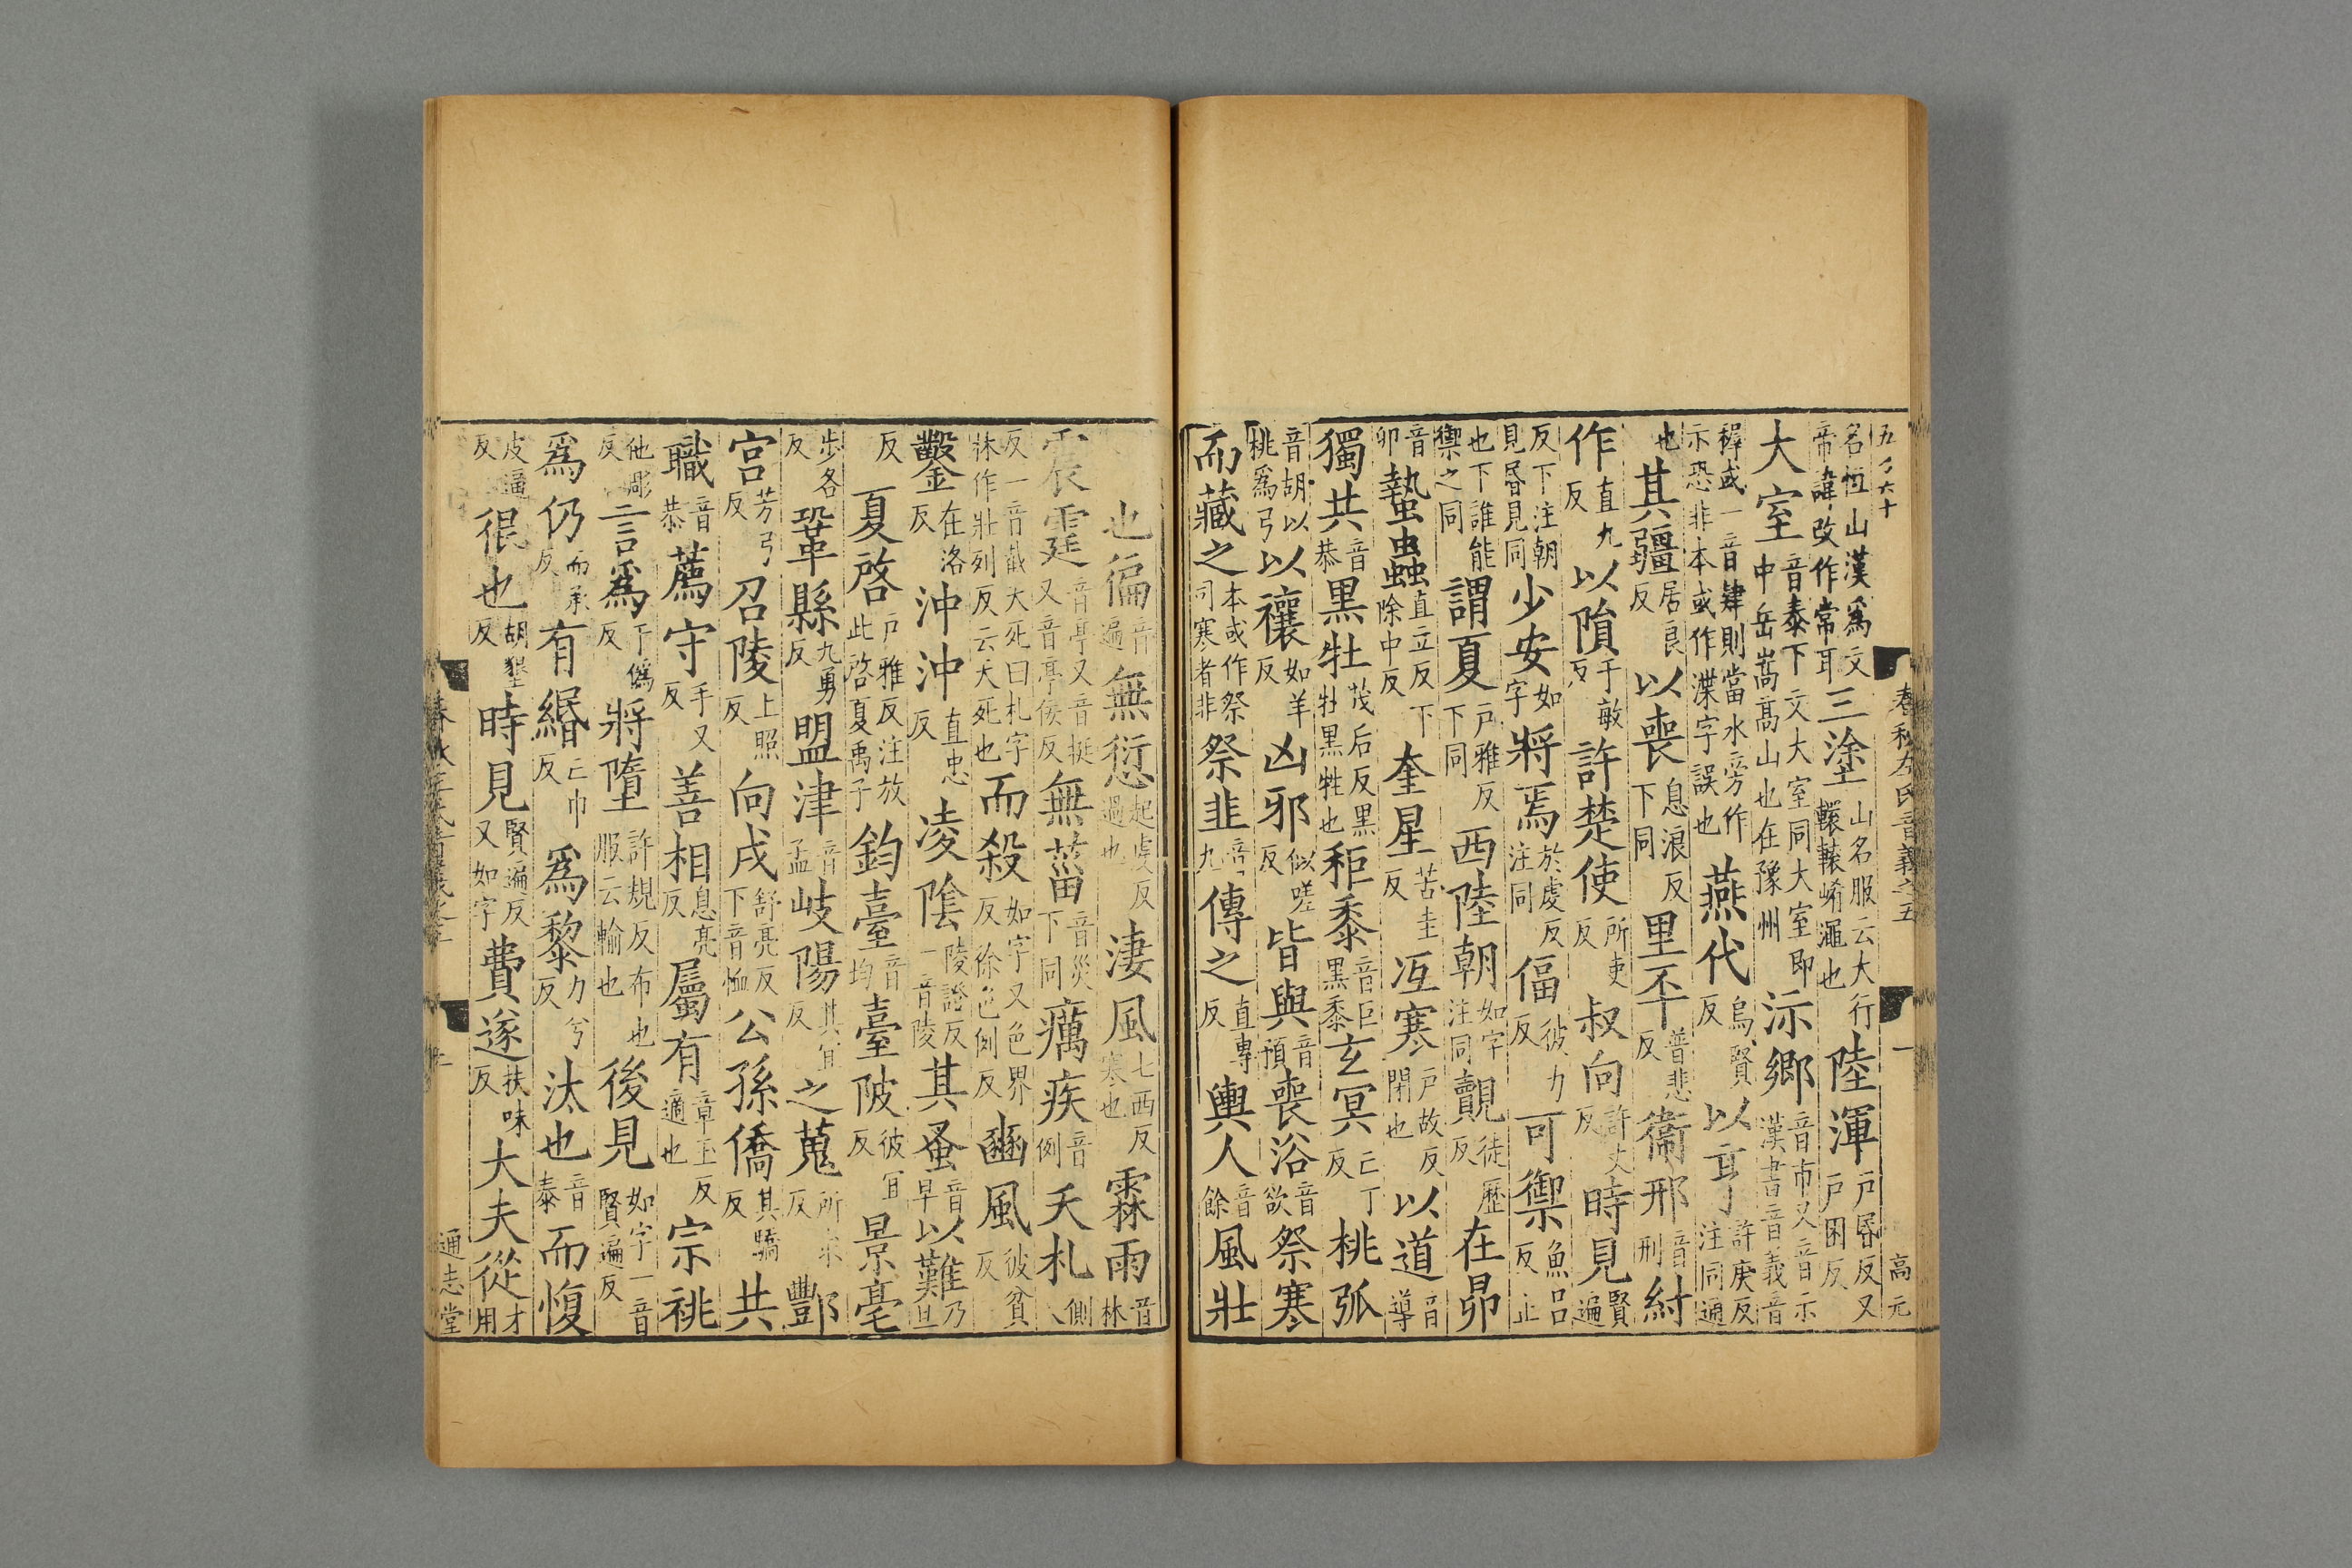 五夕六十 春秋左氏音義之五 一 高元
名恒山漢為文帝諱改作常耳三塗山名服云大行轘轅崤澠也陸渾戶昏反又戶困反
大室音泰下文大室同大室即中岳嵩高山也在豫州沶鄉音市又音示漢書音義音
穉或一音肄則當水旁作示恐非本或作漅字誤也燕代烏賢反以享許庚反注同通
也其疆居良反以喪息浪反下同里丕普悲反衞邢音刑紂
作直九反以隕于敏反許楚使所吏反叔向許丈反時見賢遍
反下注朝見昬見同少安如字將焉於虔反注同偪彼力反可禦魚呂反止
也下誰能禦之同謂夏戶雅反下同西陸朝如字注同覿徒歷反在昴
音卯蟄蟲直立反下除中反奎星苦圭反沍寒戶故反閉也以道音導
獨共音恭黑牡茂后反黑牡黑牲也秬黍音巨黑黍玄冥亡丁反桃弧
音胡以桃爲弓以禳如羊反凶邪似嗟反皆與音預喪浴音欲祭寒
而藏之本或作祭司寒者非祭韭音九傳之直專反輿人音餘風壯
也偏音遍無愆起虔反過也淒風七西反寒也霖雨音林
震霆音亭又音挺又音亭佞反無菑音災下同癘疾音例夭札側八
反一音截大死曰札字林作壯列反云夭死也而殺如字又色界反徐色例反豳風彼貧反
鑿在洛反沖沖直忠反凌陰陵證反一音陵其蚤音早以難乃旦
反夏啓戶雅反注放此啓夏禹子鈞臺音均臺陂彼宜反景亳
步各反鞏縣九勇反盟津音孟岐陽其宜反之蒐所求反酆
宮芳弓反召陵上照反向戌舒亮反下音恤公孫僑其驕反共
職音恭薦守手又反善相息亮反屬有章玉反適也宗祧
他彫反言爲于僞反將墮許規反布也服云輸也後見如字一音賢遍反
爲仍而承反有緡亡巾反爲黎力兮反汰也音泰而愎
皮逼反很也胡墾反時見賢遍反又如字費遂扶味反大夫從才用
通志堂